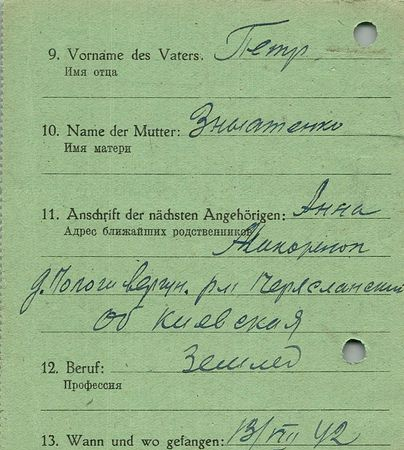 9. Vorname des Vaters. Петр
Имя отца
10. Name der Mutter:
Имя матери
11. Anschrift der nächsten Angehörigen: Анна
Адрес ближайших родственников
д. Пологи
об Киевская
12. Beruf: Землед
Профессия
13. Wann und wo gefangen: 13/VIII 42